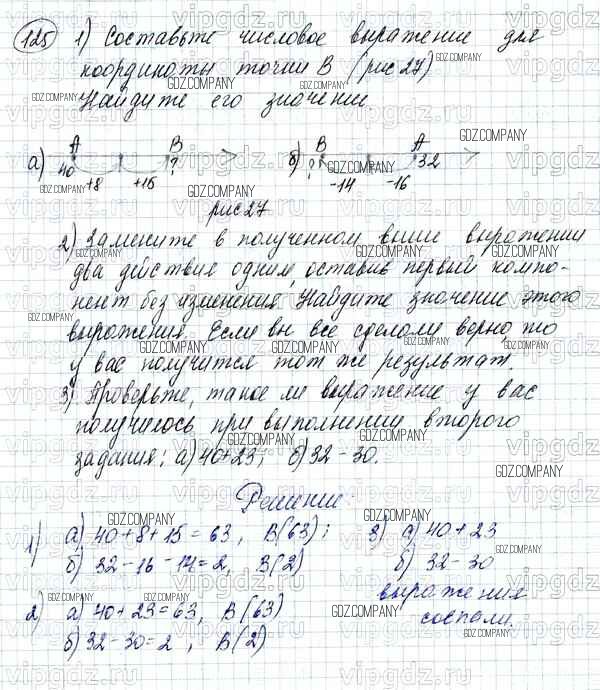 125 1) Составьте числовое выражение для
координаты точки В (рис 27)
Найдите его значении
а) А 40 +8 +15 В ?
б) В ? -14 -16 А 32
рис 27
2) Замените в полученном выше выражении
два действия одним, оставив первый компо-
нент без изменения. Найдите значение этого
выражения. Если вы все сделали верно, то
у вас получится тот же результат.
3) Проверьте, такое ли выражение у вас
получилось при выполнении второго
задания: а) 40+23; б) 32-30.
Решение.
1) а) 40+8+15=63, В(63);
б) 32-16-14=2, В(2)
2) а) 40+23=63, В(63)
б) 32-30=2, В(2)
3) а) 40+23
б) 32-30
выражения
совпали.
vipgdz.ru
GDZ.COMPANY